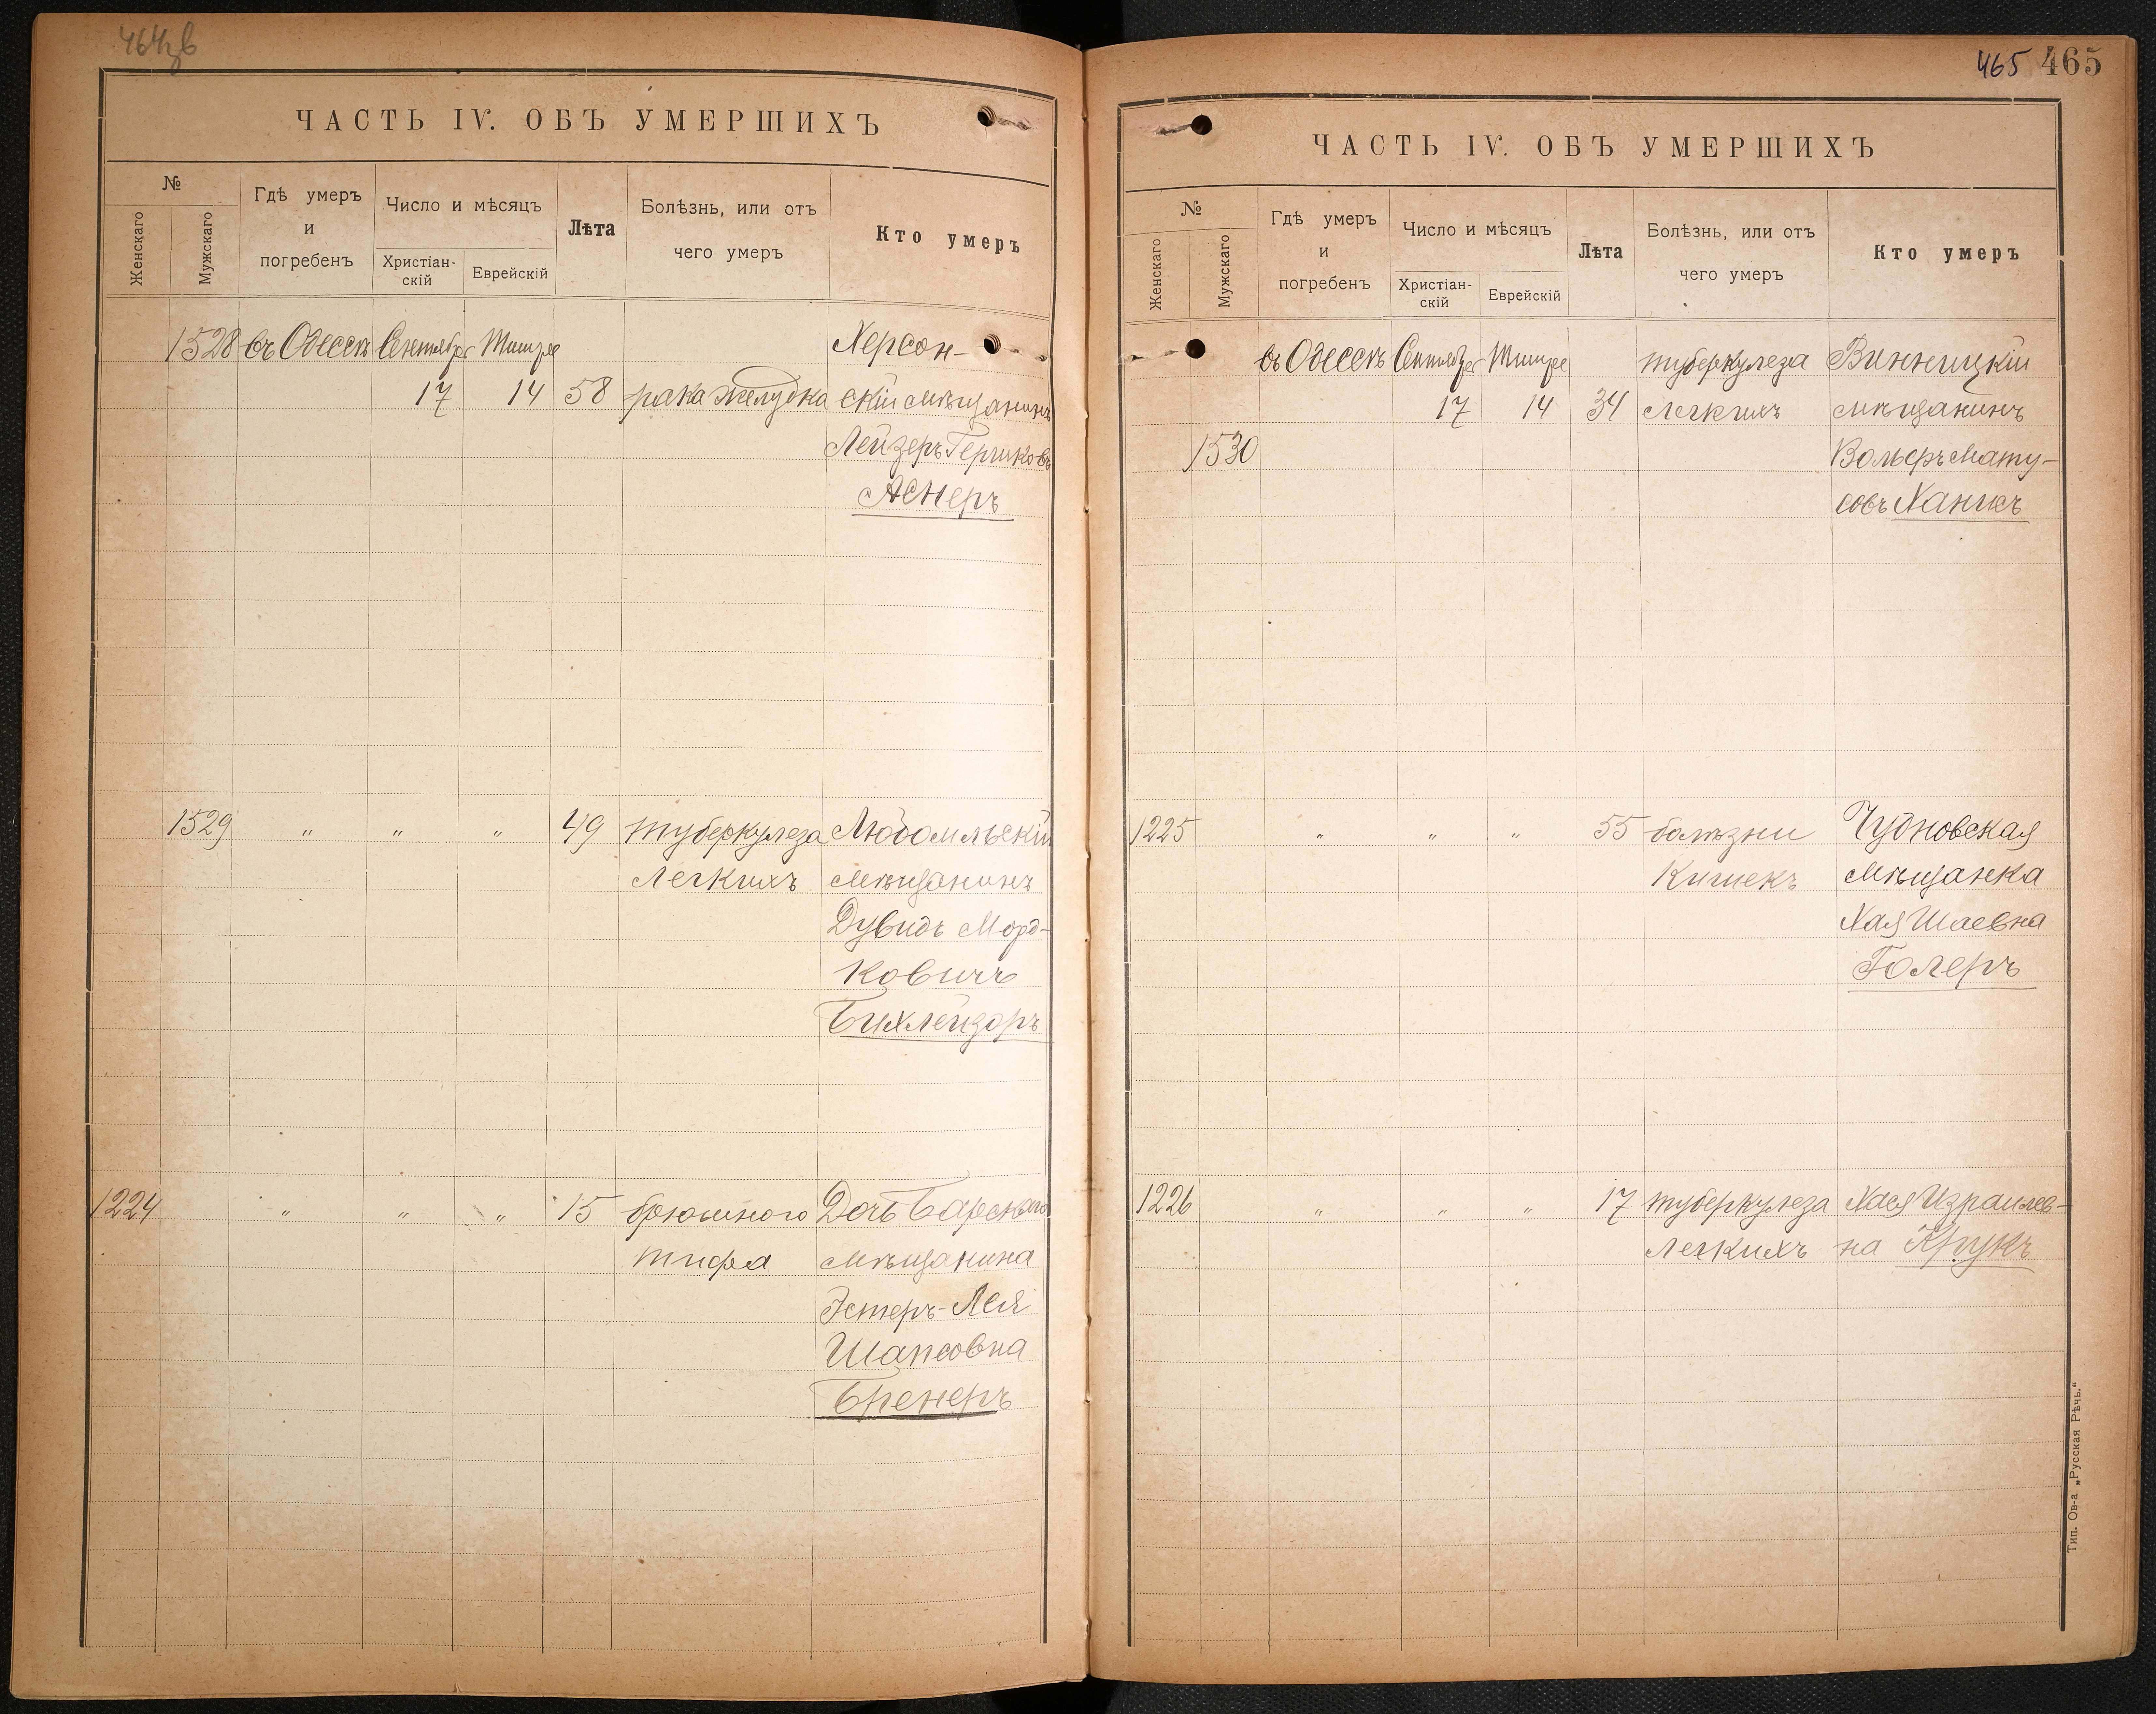 464зв
ЧАСТЬ IV. ОБЪ УМЕРШИХЪ
№
Женскаго
Мужскаго
Гдѣ умеръ
и
погребенъ
Число и мѣсяцъ
Христіан-
скій
Еврейскій
Лѣта
Болѣзнь, или отъ
чего умеръ
Кто умеръ
1528 въ Одессѣ Сентября Тишре Херсон-
17 14 58 рака желудка скій мѣщанинъ
Лейзеръ Гершковъ
Аснеръ
1529 " " " 49 туберкулеза Любомльскій
легкихъ мѣщанинъ
Дувидъ Морд-
ковичъ
Бихлейзоръ
1224 " " " 15 брюшного Дочь Барскаго
тифа мѣщанина
Эстеръ-Лея
Шапсовна
Бренеръ
465 465
ЧАСТЬ IV. ОБЪ УМЕРШИХЪ
№
Женскаго
Мужскаго
Гдѣ умеръ
и
погребенъ
Число и мѣсяцъ
Христіан-
скій
Еврейскій
Лѣта
Болѣзнь, или отъ
чего умеръ
Кто умеръ
въ Одессѣ Сентября Тишре туберкулеза Винницкій
17 14 34 легкихъ мѣщанинъ
1530 Вольфъ Мату-
совъ Ханисъ
1225 " " " 55 болѣзни Чудновская
кишекъ мѣщанка
Хая Шаевна
Голеръ
1226 " " " 17 туберкулеза Хася Израилев-
легкихъ на Крукъ
Тип. Ов-а „Русская Рѣчь."